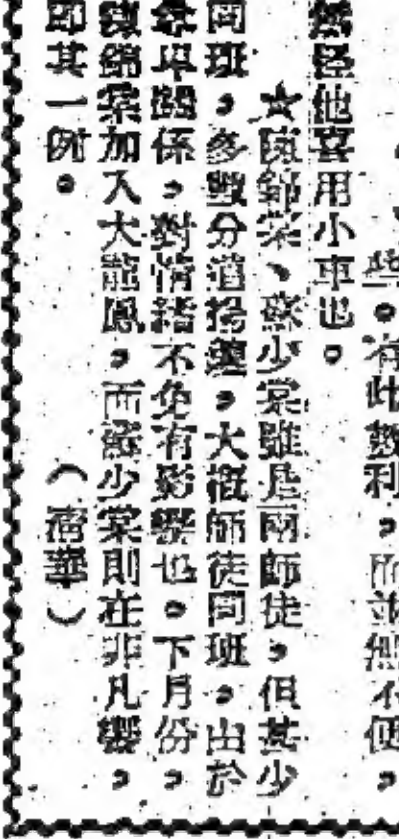 些。有此數利,而並無不便,
無怪他喜用小車也。
☆陳錦棠、蘇少棠雖是兩師徒,但甚少
同班,多數分道揚鑣,大概師徒同班,由於
尊卑關係,對情緒不免有影響也。下月份,
陳錦棠加入大龍鳳,而蘇少棠則在非凡響,
即其一例。(華)